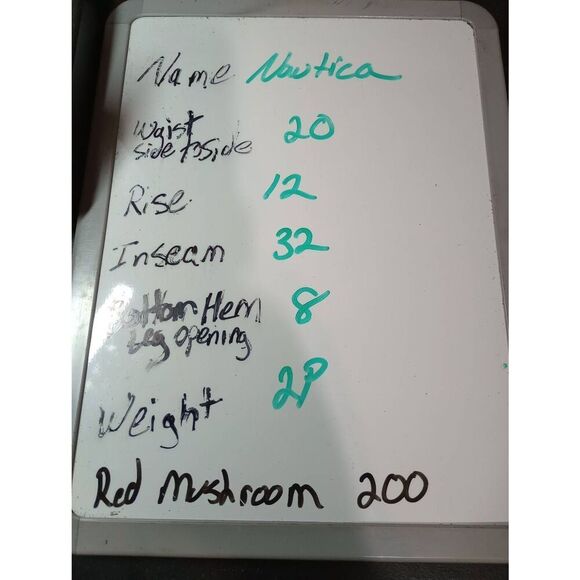 Name Nautica
Waist 20
side to side
Rise 12
Inseam 32
Bottom Hem 8
Leg opening
Weight 2P
Red Mushroom 200